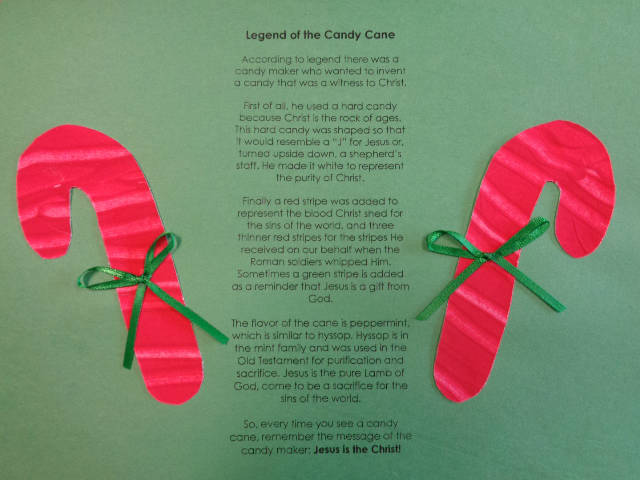 Legend of the Candy Cane
According to legend there was a
candy maker who wanted to invent
a candy that was a witness to Christ.
First of all, he used a hard candy
because Christ is the rock of ages.
This hard candy was shaped so that
it would resemble a "J" for Jesus or,
turned upside down, a shepherd's
staff. He made it white to represent
the purity of Christ.
Finally a red stripe was added to
represent the blood Christ shed for
the sins of the world, and three
thinner red stripes for the stripes He
received on our behalf when the
Roman soldiers whipped Him.
Sometimes a green stripe is added
as a reminder that Jesus is a gift from
God.
The flavor of the cane is peppermint,
which is similar to hyssop. Hyssop is in
the mint family and was used in the
Old Testament for purification and
sacrifice. Jesus is the pure Lamb of
God, come to be a sacrifice for the
sins of the world.
So, every time you see a candy
cane, remember the message of the
candy maker: Jesus is the Christ!